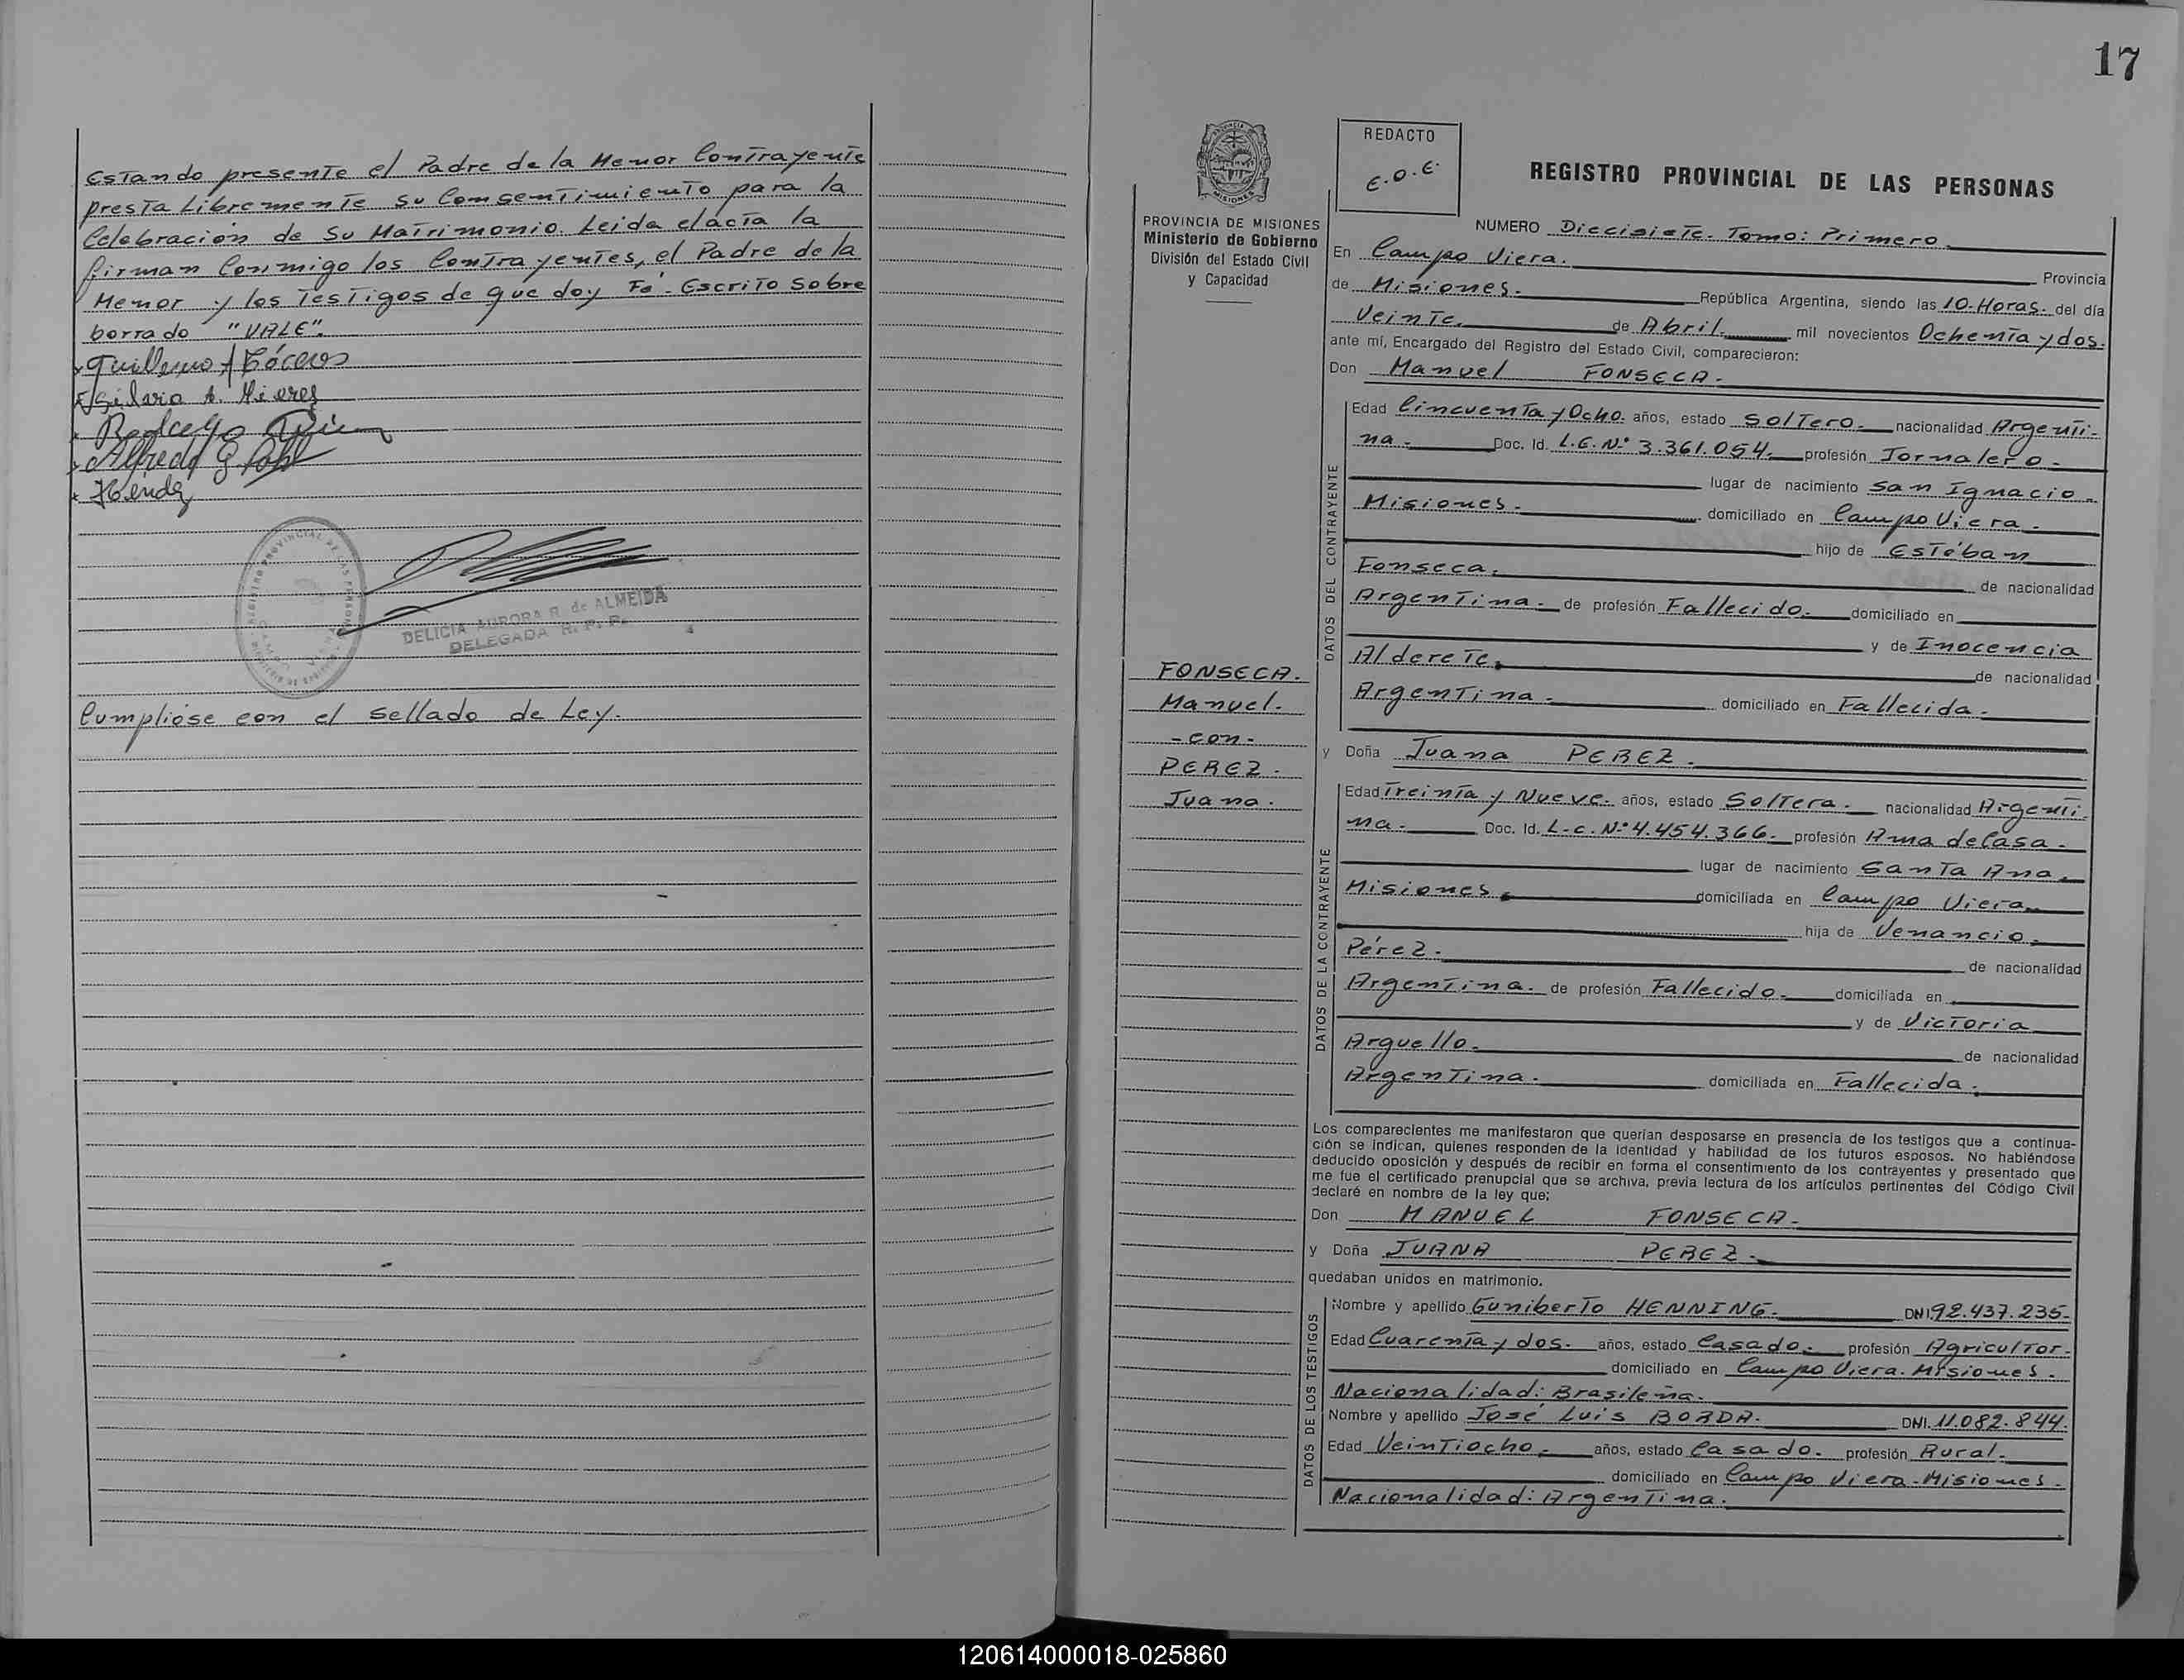 Estando presente el Padre de la Menor Contrayente
presta Libremente su Consentimiento para la
Celebración de Su Matrimonio. Leida el acta la
firman Conmigo los Contrayentes, el Padre de la
Menor y los Testigos de que doy Fé. Escrito Sobre
borrado "VALE".
Silvia A. Mieres
Alfredo
DELICIA AURORA R. de ALMEIDA
DELEGADA R. P. P.
Cumplióse con el sellado de Ley.
17
PROVINCIA DE MISIONES
Ministerio de Gobierno
División del Estado Civil
y Capacidad
REDACTO
E.O.E.
REGISTRO PROVINCIAL DE LAS PERSONAS
NUMERO Diecisiete. Tomo: Primero.
En Campo Viera. Provincia
de Misiones. República Argentina, siendo las 10-Horas. del día
Veinte. de Abril. mil novecientos Ochenta y dos.
ante mí, Encargado del Registro del Estado Civil, comparecieron:
Don Manuel FONSECA.
DATOS DEL CONTRAYENTE
Edad Cincuenta y Ocho. años, estado Soltero. nacionalidad Argenti-
na. Doc. Id. L.E. N.º 3.361.054. profesión Jornalero.
lugar de nacimiento San Ignacio.
Misiones. domiciliado en Campo Viera.
hijo de Estéban
Fonseca. de nacionalidad
Argentina. de profesión Fallecido. domiciliado en
y de Inocencia
Alderete. de nacionalidad
Argentina. domiciliado en Fallecida.
FONSECA.
Manuel.
-con-
PEREZ.
Juana.
y Doña Juana PEREZ.
DATOS DE LA CONTRAYENTE
Edad Treinta y Nueve. años, estado Soltera. nacionalidad Argenti-
na. Doc. Id. L.C. N.º 4.454.366. profesión Ama de Casa.
lugar de nacimiento Santa Ana.
Misiones. domiciliada en Campo Viera.
hija de Venancio.
Pérez. de nacionalidad
Argentina. de profesión Fallecido. domiciliada en
y de Victoria
Arguello. de nacionalidad
Argentina. domiciliada en Fallecida.
Los comparecientes me manifestaron que querían desposarse en presencia de los testigos que a continua-
ción se indican, quienes responden de la identidad y habilidad de los futuros esposos. No habiéndose
deducido oposición y después de recibir en forma el consentimiento de los contrayentes y presentado que
me fue el certificado prenupcial que se archiva, previa lectura de los artículos pertinentes del Código Civil
declaré en nombre de la ley que:
Don MANUEL FONSECA.
y Doña JUANA PEREZ.
quedaban unidos en matrimonio.
DATOS DE LOS TESTIGOS
Nombre y apellido Guniberto HENNING. DNI 92.437.235.
Edad Cuarenta y dos. años, estado Casado. profesión Agricultor.
domiciliado en Campo Viera. Misiones.
Nacionalidad: Brasileña.
Nombre y apellido José Luis BORDA. DNI. 11.082.844.
Edad Veintiocho. años, estado Casado. profesión Rural.
domiciliado en Campo Viera-Misiones.
Nacionalidad: Argentina.
120614000018-025860